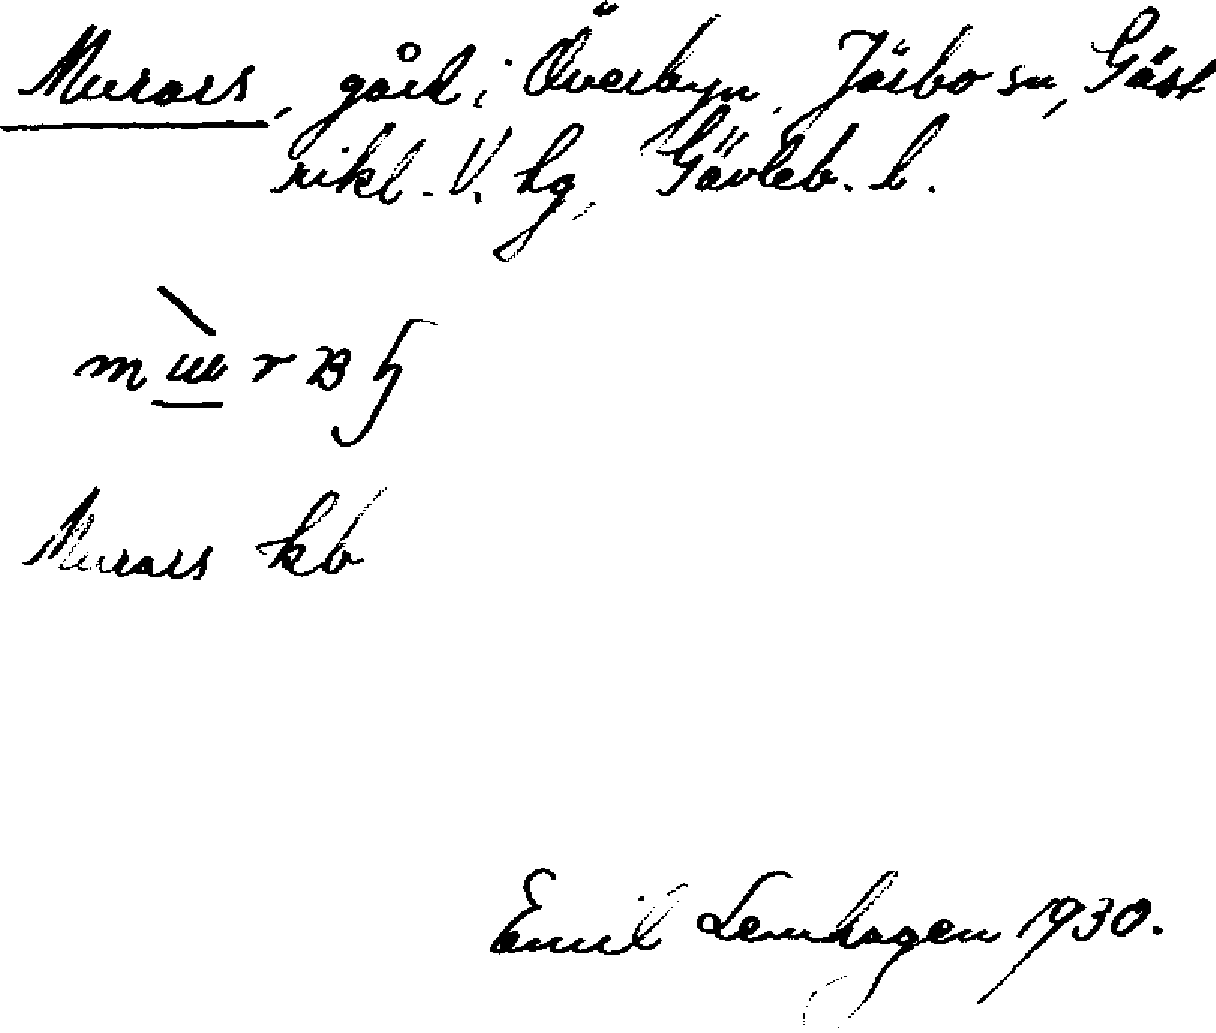 Murars, gård i Överbyn, Järbo sn, Gäst
rikl. V. hg, Gävleb. l.
Murars kb
Emil Lemhagen 1930.